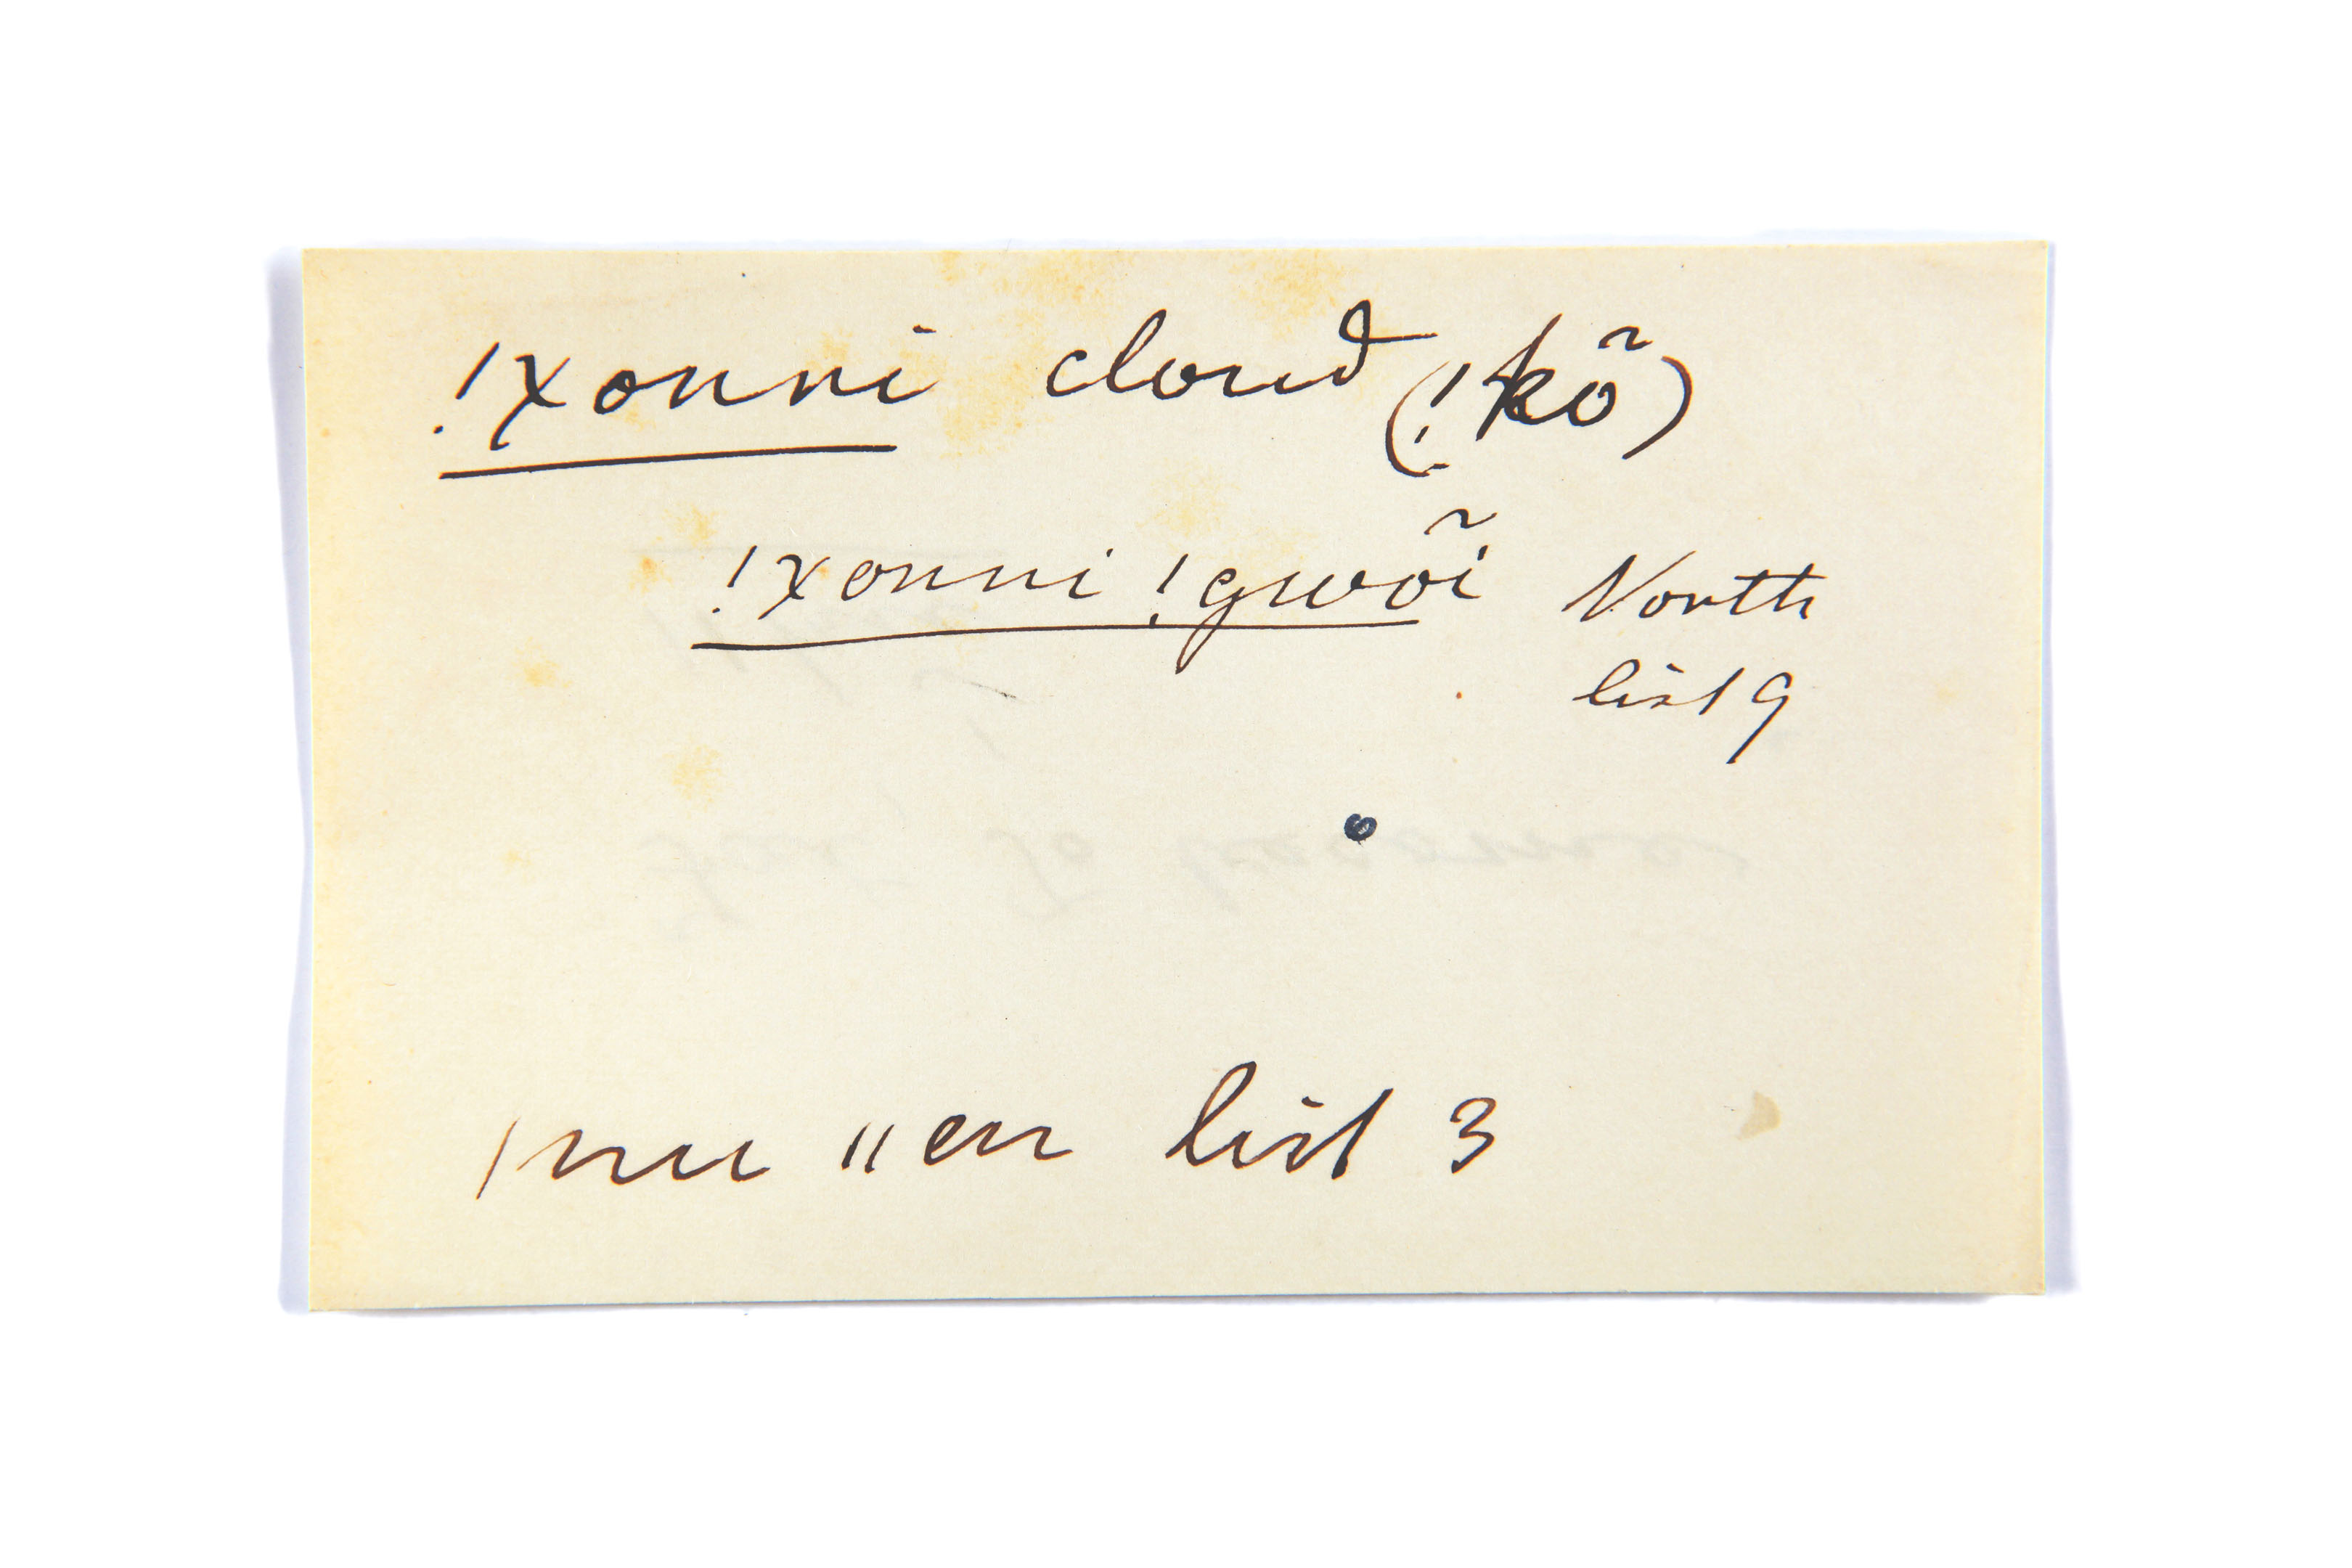 !χonni cloud (!kõ)
!χonni !gwõi North
list 9
ǀnu ǁen list 3